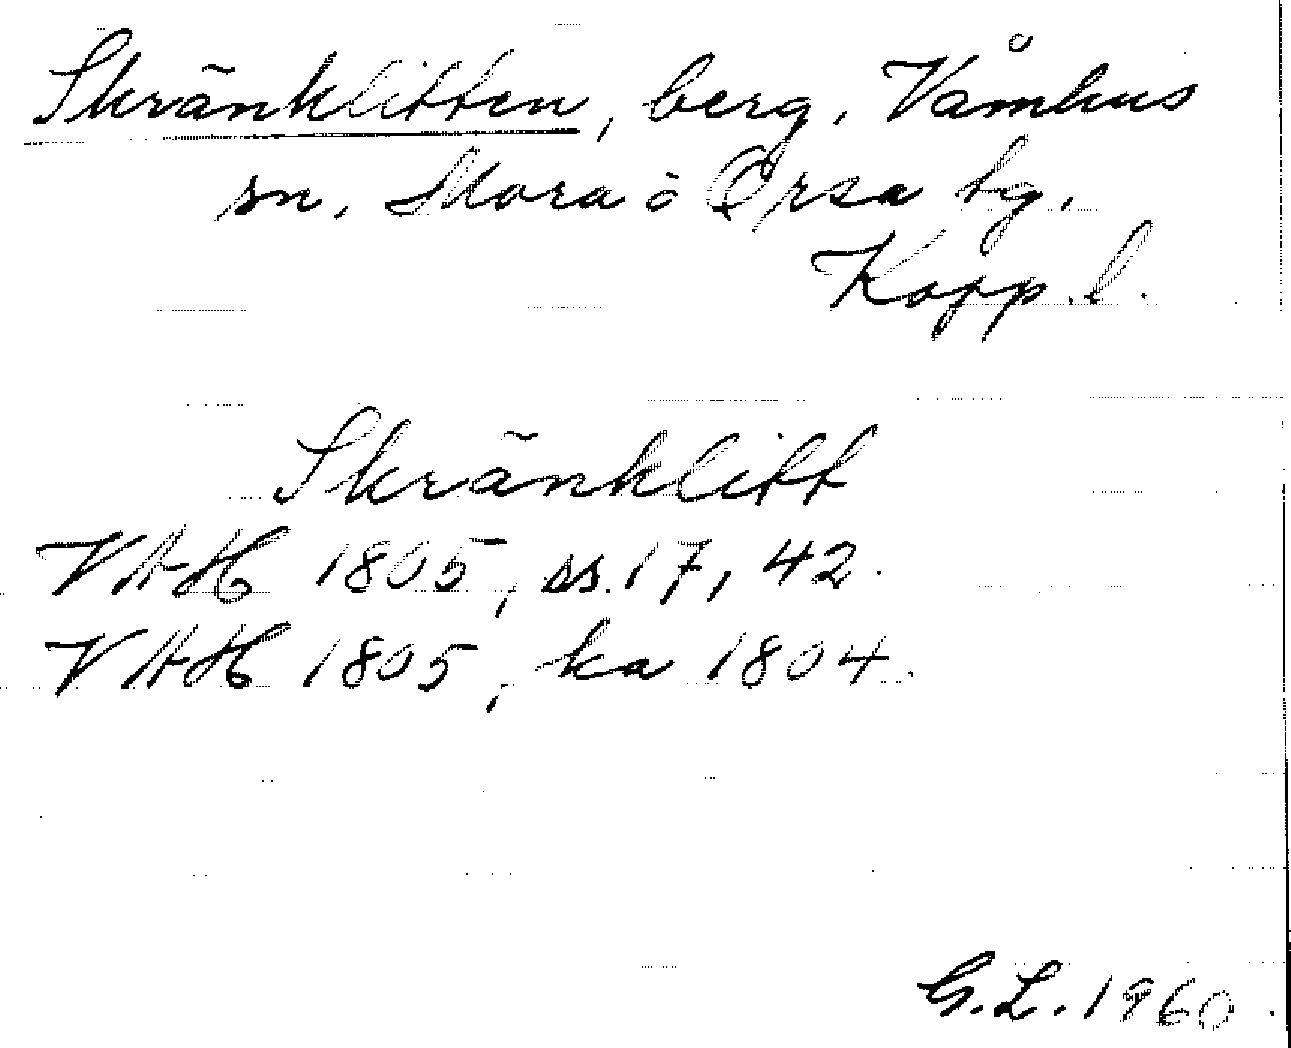 Skränklitten, berg, Våmhus
sn, Mora o Orsa tg,
Kopp. l.
Skränklitt
VAH 1805, ss. 17, 42.
VAH 1805, ka 1804.
G.L. 1960.